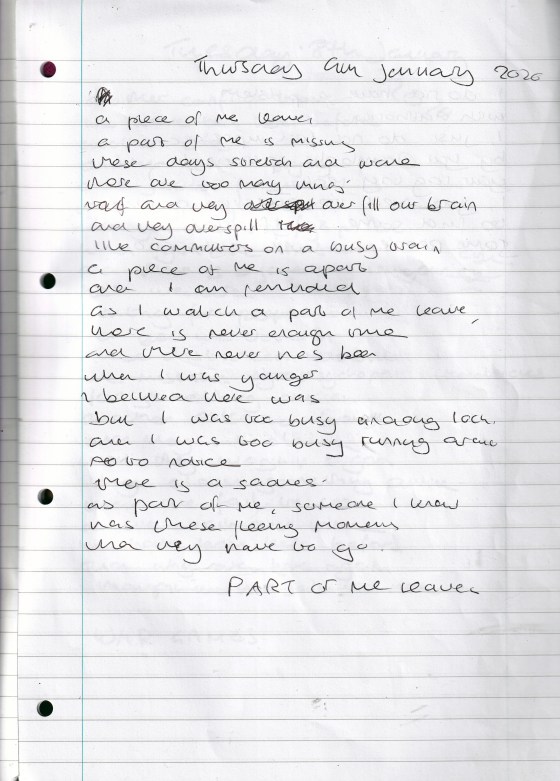 Thursday 9th January 2020
a piece of me leaves
a part of me is missing
these days stretch and wane
there are too many things
and they over fill our brain
and they overspill
like commuters on a busy train
a piece of me is apart
and I am reminded
as I watch a part of me leave,
there is never enough time
and there never has been
when I was younger
I believed there was
but I was too busy
and I was too busy running around
to notice
there is a sadness.
as part of me, someone I know
has these fleeting moments
they have to go.
PART of me leaves